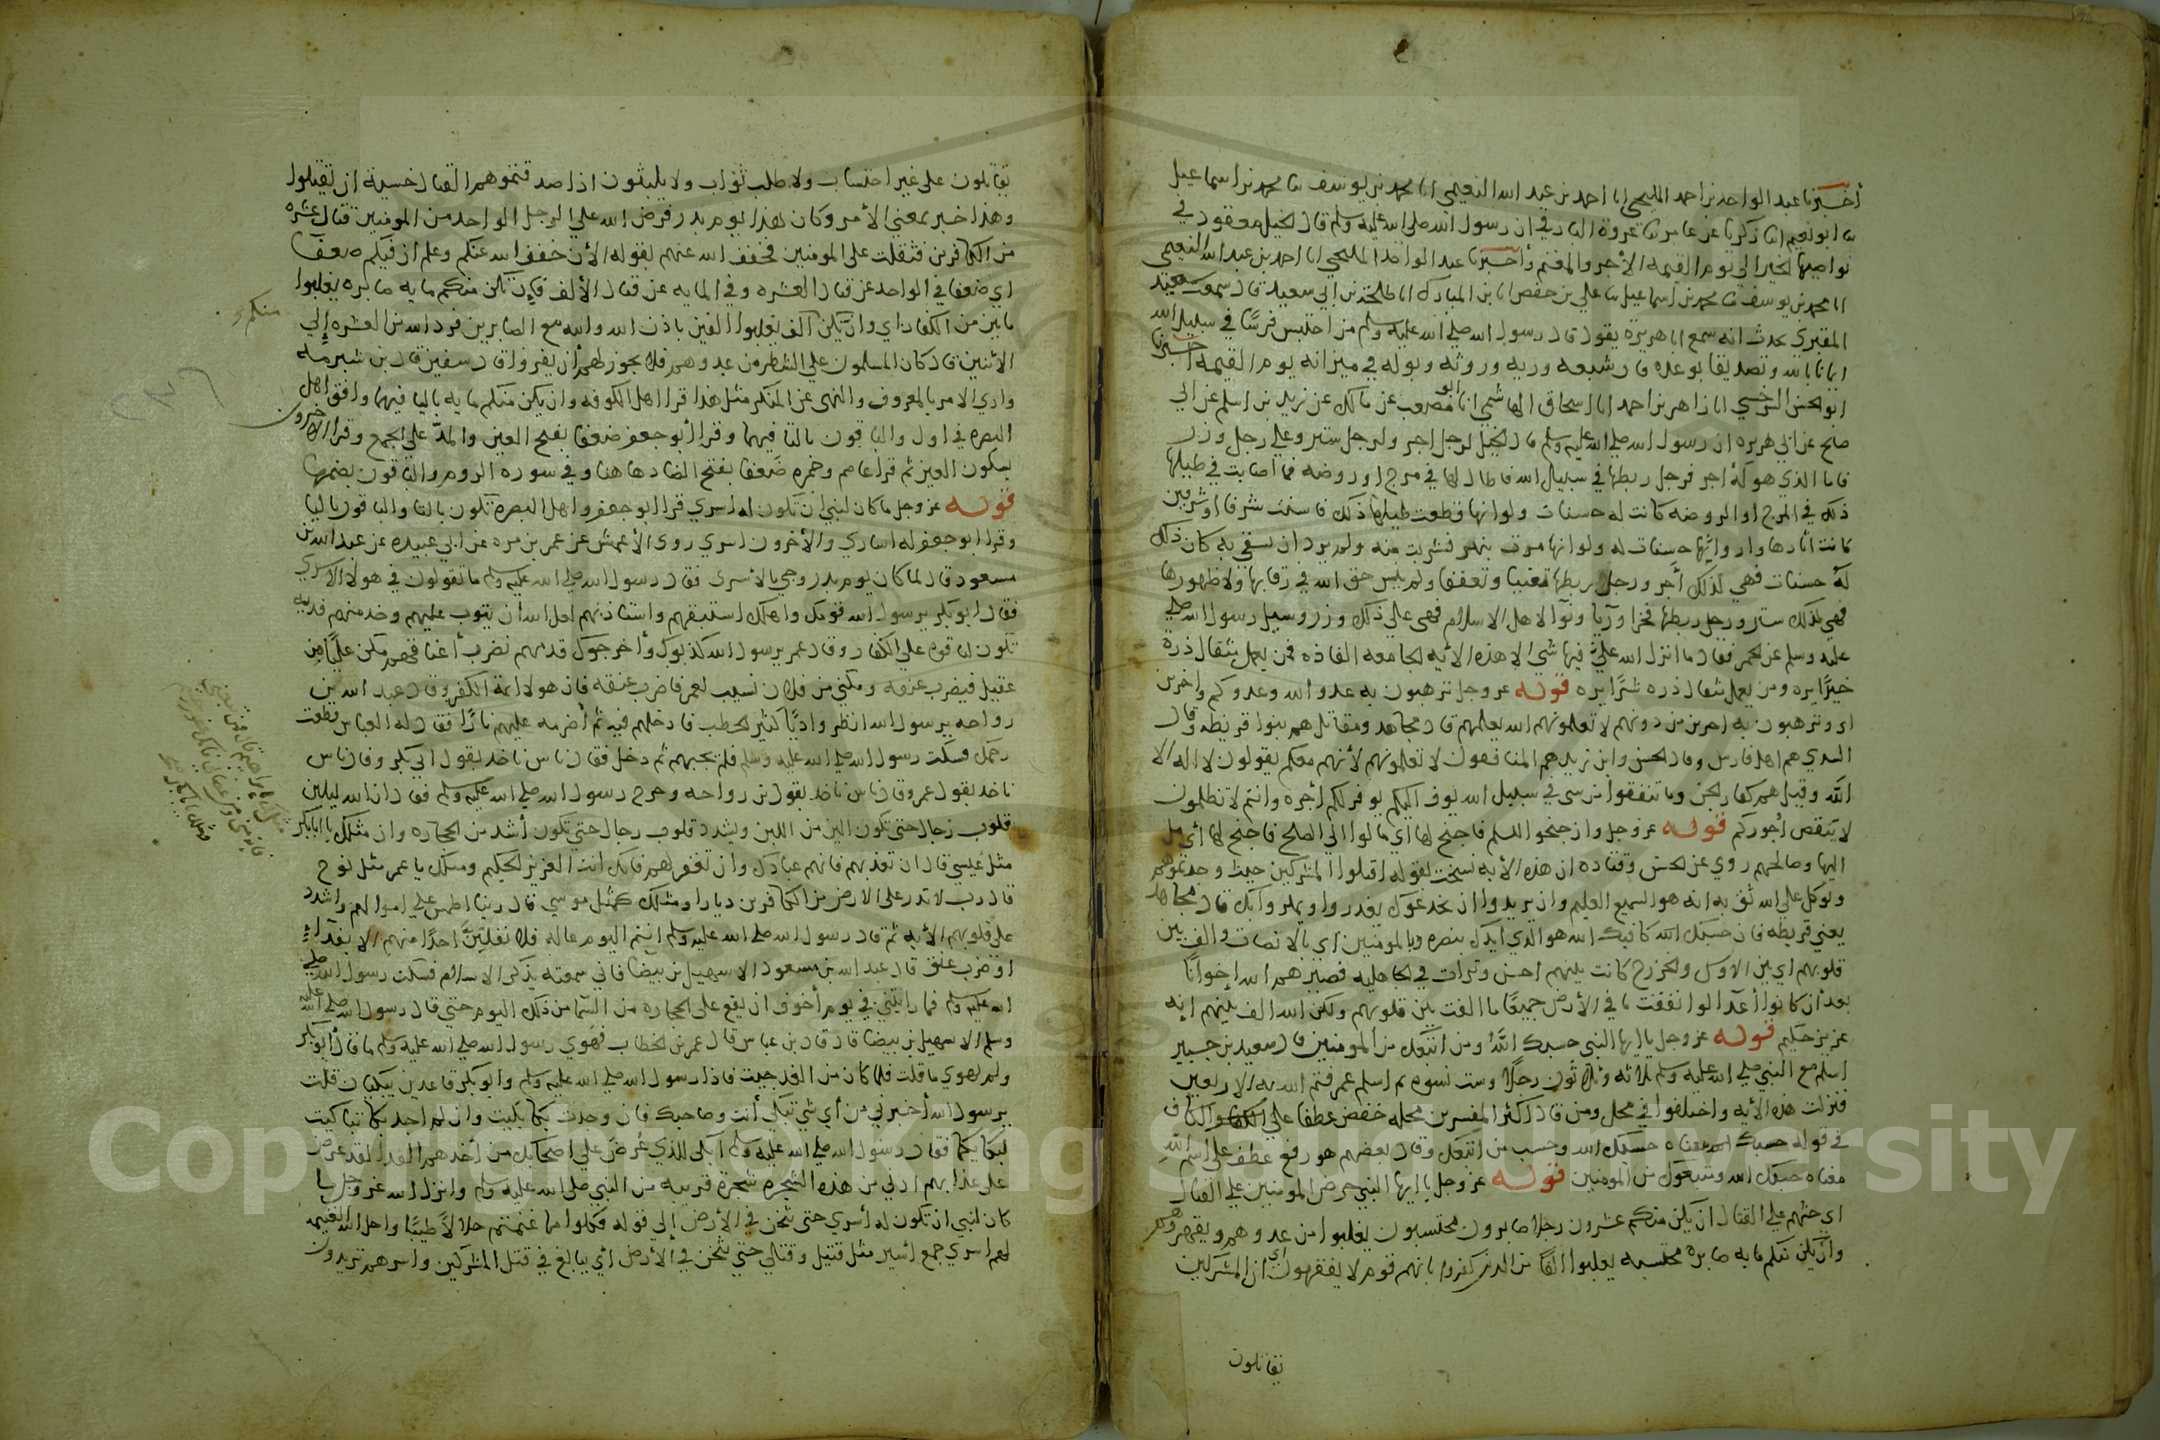 أخبرنا عبد الواحد بن احمد المليحي انا احمد بن عبد الله النعيمي انا محمد بن يوسف ثنا محمد بن اسماعيل
ثنا ابو نعيم ثنا زكريا عن عامر ثنا عروة البارقي ان رسول الله صلى الله عليه وسلم قال الخيل معقود في
نواصيها الخير الى يوم القيمه الأجر والمغنم وأخبرنا عبد الواحد المليحي انا احمد بن عبد الله النعيمي
انا محمد بن يوسف ثنا محمد بن اسماعيل ثنا علي بن حفص انا بن المبارك انا طلحة بن ابي سعيد قال سمعت سعيد
المقبري يحدث انه سمع ابا هريرة يقول قال رسول الله صلي الله عليه وسلم من احتبس فرسًا في سبيل الله
ايمانا بالله وتصديقا بوعده فان شبعه وريه وروثه وبوله في ميزانه يوم القيمه أخبرنا
ابو الحسن السرخسي انا زاهر بن احمد انا ابو اسحاق الهاشمي انا ابو مصعب عن مالك عن زيد بن اسلم عن ابي
صالح عن ابي هريره ان رسول الله صلي الله عليه وسلم قال الخيل لرجل اجر ولرجل ستر وعلي رجل وزر
فاما الذي هو له أجر فرجل ربطها في سبيل الله فاطال لها في مرج او روضه فما اصابت في طيلها
ذلك في المرج او الروضه كانت له حسنات ولو انها قطعت طيلها ذلك فاستنت شرفا او شرفين
كانت اثارها واروائها حسنات له ولو انها مرت بنهر فشربت منه ولم يرد ان يسقي به كان ذلك
له حسنات فهي لذلك أجر ورجل ربطها تغنيا وتعففا ولم ينس حق الله في رقابها ولا ظهورها
فهي لذلك ستر ورجل ربطها فخرا ورآيا ونوآ لاهل الاسلام فهي علي ذلك وزر وسيل رسول الله صلي
عليه وسلم عن الحمر فقال ما انزل الله عليّ فيها شئ الا هذه الأيه الجامعه الفاذه فمن يعمل مثقال ذرة
خيرًا يره ومن يعمل مثقال ذره شرًا يره قوله عز وجل ترهبون به عدو الله وعدوكم واخرين
اي وترهبون به اخرين من دونهم لا تعلمونهم الله يعلمهم قال مجاهد ومقاتل هم بنوا قريظه وقال
السدي هم اهل فارس وقال الحسن وابن زيد هم المنافقون لا تعلمونهم لأنهم معكم يقولون لا اله الا
الله وقيل هم كفار الجن وما تنفقوا من شي في سبيل الله يوف اليكم يوفر لكم أجره وانتم لا تظلمون
لا ينقص أجوركم قوله عز وجل وان جنحوا للسلم فاجنح لها اي مالوا الي الصلح فاجنح لها أي مل
اليها وصالحهم روي عن الحسن وقتاده ان هذه الأيه نسخت بقوله اقتلوا المشركين حيث وجدتموهم
وتوكل علي الله ثق به انه هو السميع العليم وان يريدوا ان يخدعوك يغدروا ويمكروا بك قال مجاهد
يعني قريظه فان حسبك الله كافيك الله هو الذي ايدك بنصره وبالمومنين اي بالانصار والف بين
قلوبهم اي بين الاوس والخزرج كانت بينهم احن وترات في الجاهليه فصيرهم الله اخوانًا
بعد أن كانوا أعدآ لو انفقت ما في الأرض جميعًا ما الفت بين قلوبهم ولكن الله الف بينهم انه
عزيز حكيم قوله عز وجل يا ايها النبي حسبك الله ومن اتبعك من المومنين قال سعيد بن جبير
اسلم مع النبي صلي الله عليه وسلم ثلاثه وثلاثون رجلًا وست نسوه ثم اسلم عمر فتم الله به الاربعين
فنزلت هذه الأيه واختلفوا في محل ومن قال اكثر المفسرين محله خفض عطفا علي الكاف
في قوله حسبك معناه حسبك الله وحسب من اتبعك وقال بعضهم هو رفع عطف علي اسم الله
معناه حسبك الله ومتبعوك من المومنين قوله عز وجل يا ايها النبي حرض المومنين علي القتال
اي حثهم علي القتال ان يكن منكم عشرون رجلا صابرون محتسبون يغلبوا من عدوهم ويقهروهم
وان يكن منكم مايه صابرة محتسبه يغلبوا الفًا من الذين كفروا بانهم قوم لا يفقهون اي ان المشركين
تقاتلون
تقاتلون على غير احتساب ولا طلب ثواب ولا يلبثون اذا صدقتموهم القتال خشية ان تقتلوا
وهذا خبر بمعني الأمر وكان هذا يوم بدر فرض الله علي الرجل الواحد من المومنين قتال عشره
من الكافرين فثقلت على المومنين فخفف الله عنهم بقوله الأن خفف الله عنكم وعلم ان فيكم ضعفا
اي ضعفا في الواحد عن قتال العشره وفي المايه عن قتال الألف فإن تكن منكم مايه صابره يغلبوا
مايتين من الكفار اي وان يكن الف يغلبوا الفين باذن الله والله مع الصابرين فرد الله من العشره إلي
منكم
الاثنين فان كان المسلمون علي الشطر من عدوهم فلا يجوز لهم أن يفروا قال سفين قال بن شبرمه
واري الامر بالمعروف والنهي عن المنكر مثل هذا قرا اهل الكوفه وان يكن منكم مايه باليا فيهما وافق اهل
البصره في اول والباقون بالتا فيهما وقرا أبو جعفر ضعفا بفتح العين والمدّ على الجمع وقرا الاخرون
بسكون العين ثم قرا عاصم وحمزه ضَعفا بفتح الضاد هاهنا وفي سوره الروم والباقون بضمها
قوله عز وجل ما كان لنبي ان تكون له اسري قرا ابو جعفر واهل البصره تكون بالتا والباقون باليا
وقرا ابو جعفر له اساري والأخرون اسري روي الأعمش عن عمر بن مره عن ابي عبيده عن عبد الله بن
مسعود قال لما كان يوم بدر وجي بالأسري فقال رسول الله صلي الله عليه وسلم ما تقولون في هولا الاسري
فقال ابو بكر يرسول الله قومك واهلك استبقهم واستانهم لعل الله ان يتوب عليهم وخذ منهم فديه
تكون لنا قوة علي الكفار وقال عمر يرسول الله كذبوك وأخرجوك قدمهم نضرب أعناقهم مكن عليًا من
عقيل فيضرب عنقه ومكني من فلان نسيب لعمر فاضرب عنقه فان هولا ايمة الكفر وقال عبد الله بن
رواحه يرسول الله انظر واديًا كثير الحطب فادخلهم فيه ثم أضرمه عليهم نارًا فقال له العباس قطعت
رحمك فسكت رسول الله صلي الله عليه وسلم فلم يجبهم ثم دخل فقال ناس ناخذ بقول ابي بكر وقال ناس
ناخذ بقول عمر وقال ناس ناخذ بقول بن رواحه وخرج رسول الله صلي الله عليه وسلم فقال ان الله ليلين
قلوب رجال حتى تكون الين من اللبن ويشدد قلوب رجال حتي تكون أشد من الحجاره وان مثلك يا ابابكر
مثل عيسي قال ان تعذبهم فانهم عبادك وان تغفر لهم فانك انت العزيز الحكيم ومثلك يا عمر مثل نوح
قال رب لا تذر على الارض من الكافرين ديارا ومثلك كمثل موسي قال ربنا اطمس علي اموالهم واشدد
علي قلوبهم الأيه ثم قال رسول الله صلي الله عليه وسلم انتم اليوم عاله فلا نفلتن أحدًا منهم الا بفدآء
او ضرب عنق قال عبد الله بن مسعود الا سهيل بن بيضا فاني سمعته يذكر الاسلام فسكت رسول الله صلي
الله عليه وسلم فما رايتني في يوم أخوف ان يقع على الحجاره من السّما من ذلك اليوم حتي قال رسول الله صلي الله عليه
وسلم الا سهيل بن بيضا قال قال بن عباس قال عمر بن الخطاب فهَوي رسول الله صلي الله عليه وسلم ما قال أبو بكر
ولم يهوي ما قلت فلما كان من الغد جيت فاذا رسول الله صلي الله عليه وسلم وابو بكر قاعدين يبكيان قلت
يرسول الله أخبرني من أي شي تبكي أنت وصاحبك فان وجدت بكا بكيت وان لم اجد بكا تباكيت
لبكايكما فقال رسول الله صلي الله عليه وسلم أبكي للذي عُرض علي اصحابك من أخذهم الفدآ لقد عرض
علي عذابهم ادني من هذه الشجره شجرة قريبه من النبي صلي الله عليه وسلم وانزل الله عز وجل ما
كان لنبي ان تكون له أسري حتي يثخن في الأرض إلي قوله فكلوا مما غنمتم حلالاً طيبًا واحل الله الغنيمه
لهم اسري جمع اسير مثل قتيل وقتلي حتي يثخن في الأرض أي يبالغ في قتل المشركين واسرهم تريدون